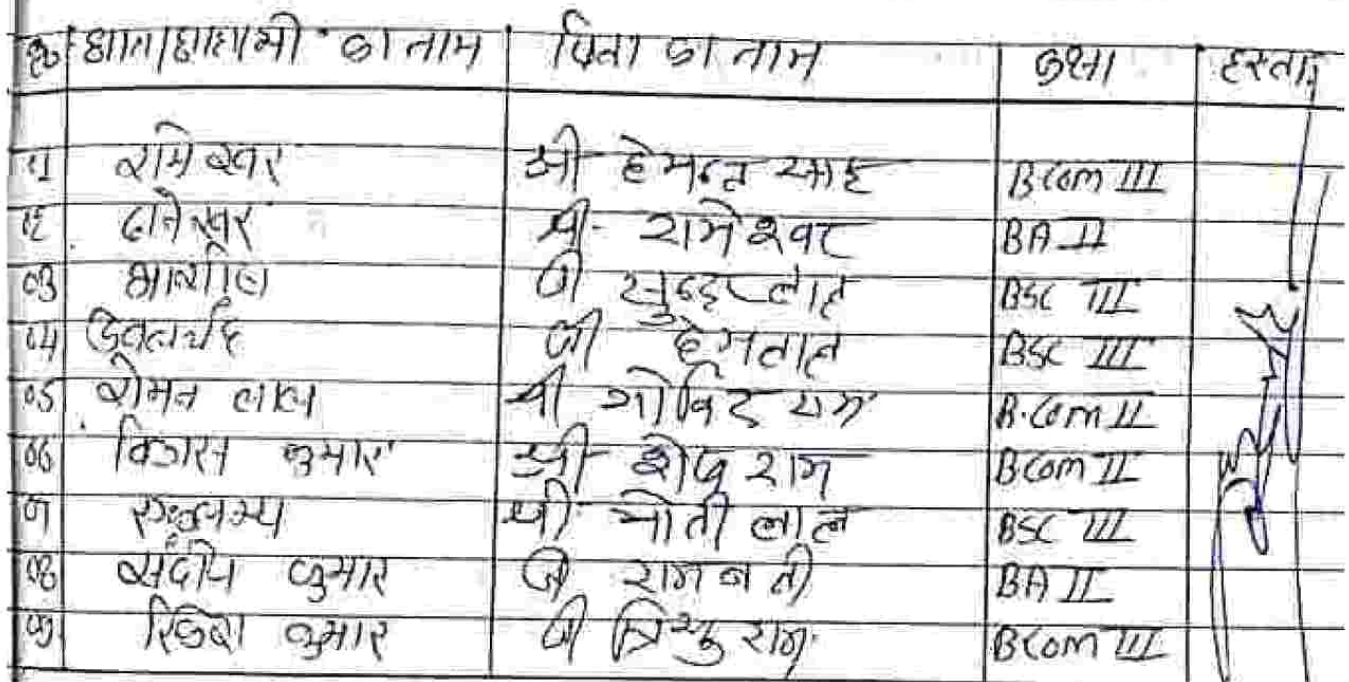 छात्र/छात्राओं का नाम पिता का नाम कक्षा हस्ता.
01 रामेश्वर श्री हेमन्त साह BCom III
02 दानेश्वर श्री रामेश्वर BA II
03 श्री सुन्दरलाल BSC III
04 श्री हेमलाल BSC III
05 रोमन लाल श्री गोविंद राम B.Com II
06 विकास कुमार श्री राम BCom II
07 श्री मोती लाल BSC III
08 संदीप कुमार श्री BA II
09 कुमार श्री राम BCom III